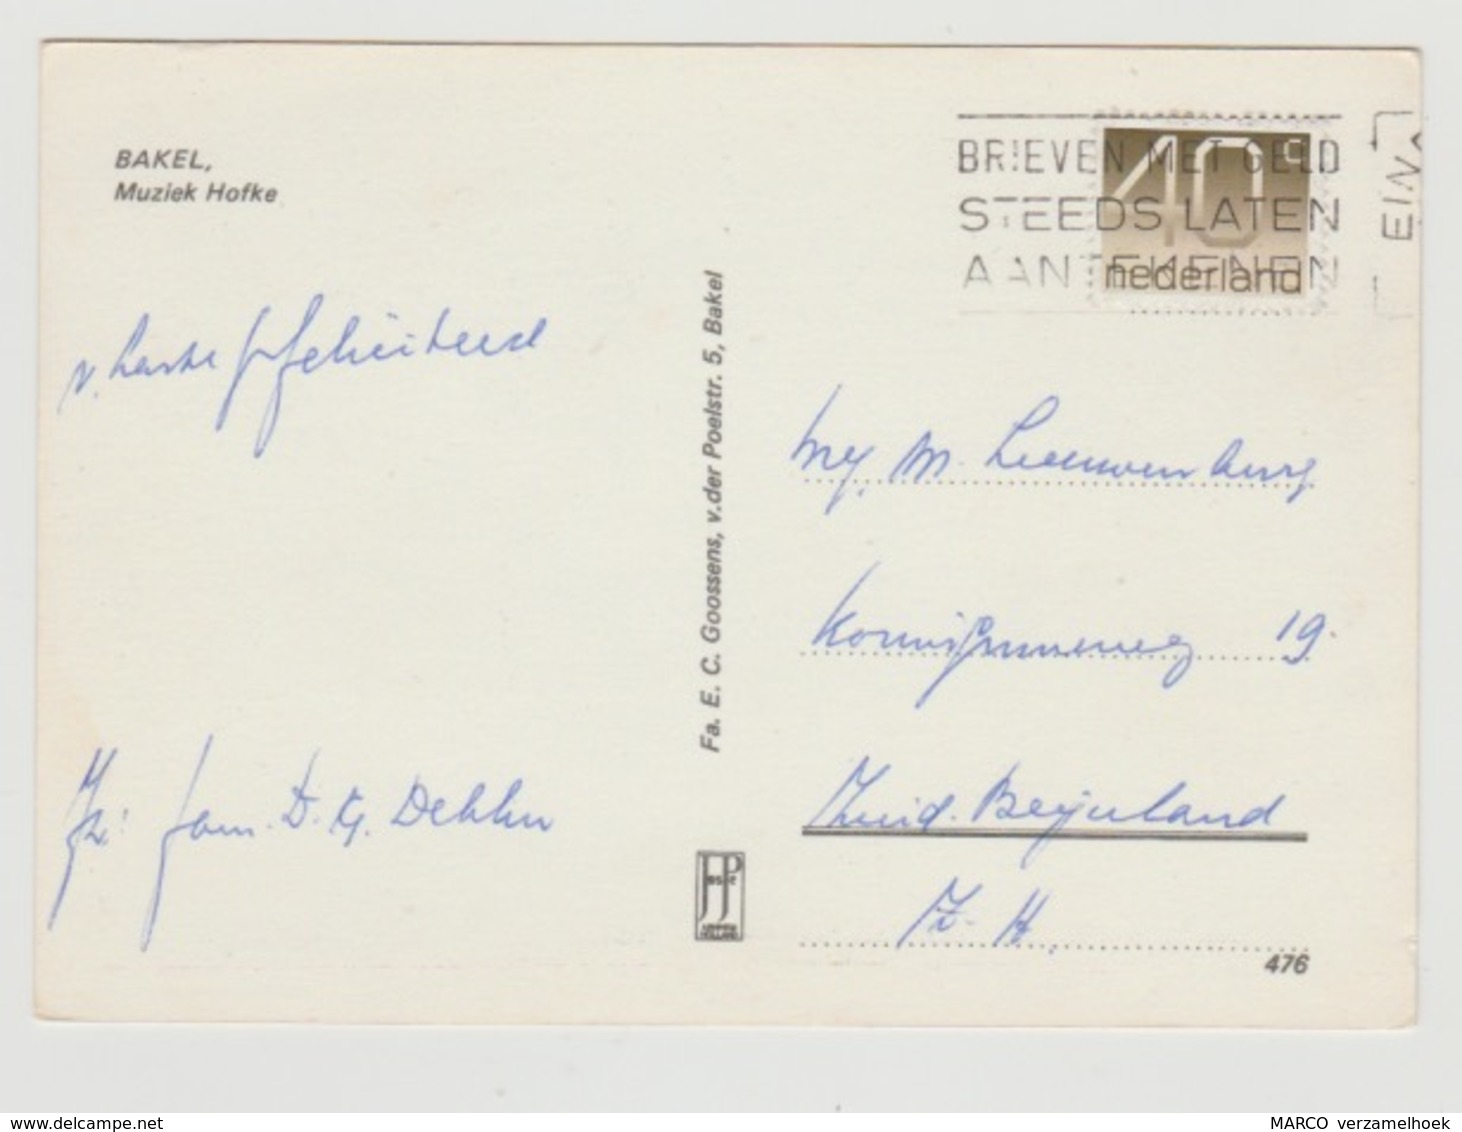 BAKEL,
Muziek Hofke
BRIEVEN MET GELD
STEEDS LATEN
AANTEKENEN
40c
nederland
EIN
v. harte gefeliciteerd
Fa. E. C. Goossens, v.der Poelstr. 5, Bakel
M. Leeuwenburg
19.
Zuid. Beijerland
Z. H.
Fam. D. G. Dekker
JosPe
476
delcampe.net
MARCO verzamelhoek